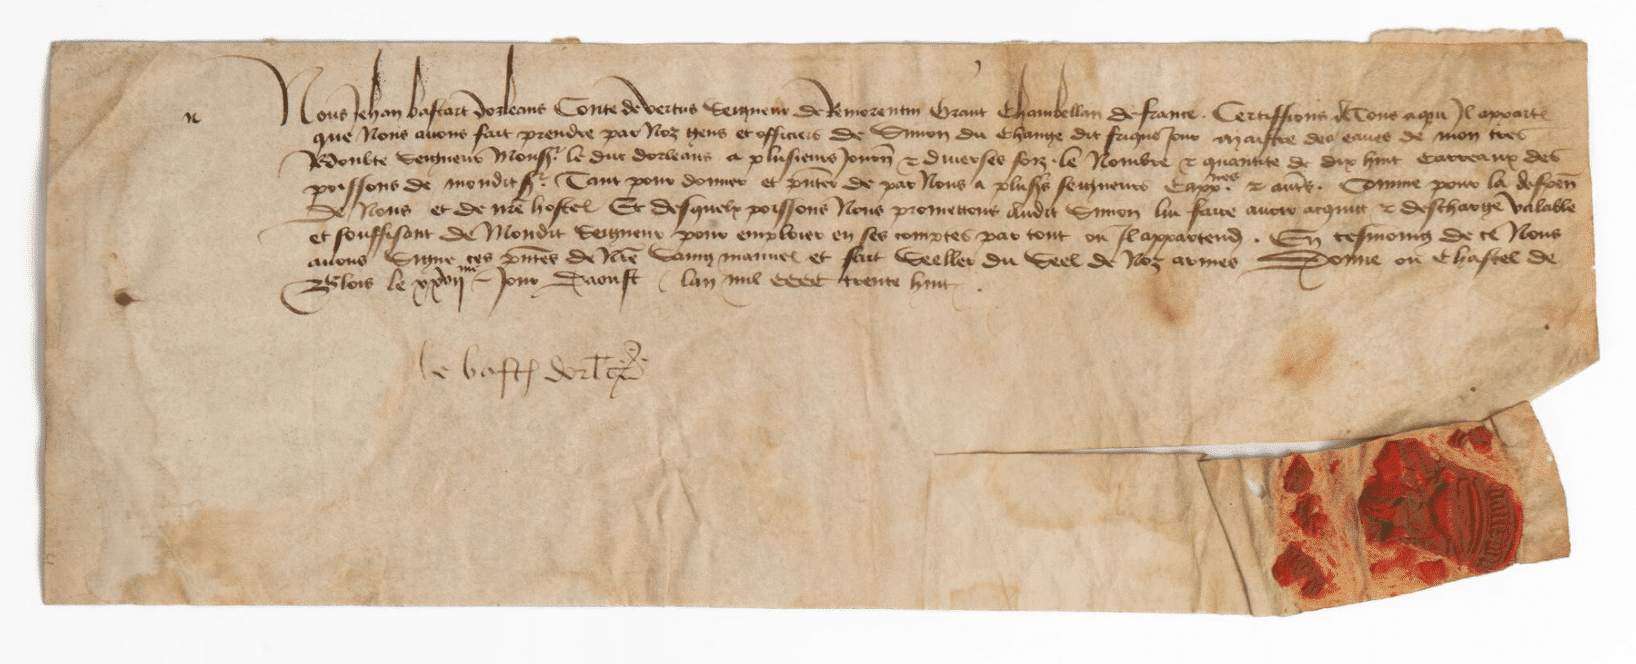 n
Nous Jehan bastart dorleans Conte de vertus Seigneur de Remorentin Grant Chambellan de france. Certiffions A Tous a qui Il appartt
que Nous avons fait prendre par Noz gens et officiers de Simon du Change dit friquejour maistre des eaues de mon tres
Redoubte Seigneur Monsr le duc dorleans a plusieurs Journ & diverses foiz. le Nombre & quantite de dix huit Carreaux des
poissons de mondit sr. Tant pour donner et pnter de par Nous a plusrs seigneurs Cappnes & autrs. Comme pour la despen
de Nous et de nre hostel Et desquelx poissons Nous promettons Audit Simon lui faire avoir acquit & descharge valable
et souffisant de Mondit Seigneur pour emploier en ses comptes par tout ou Il appartend. En tesmoing de ce Nous
avons Signe ces pntes de Nre Saing manuel et fait Seeller du Seel de Noz armes Donne ou Chastel de
Blois le xxviime Jour Daoust lan mil CCCC trente huit.
le bast dorl